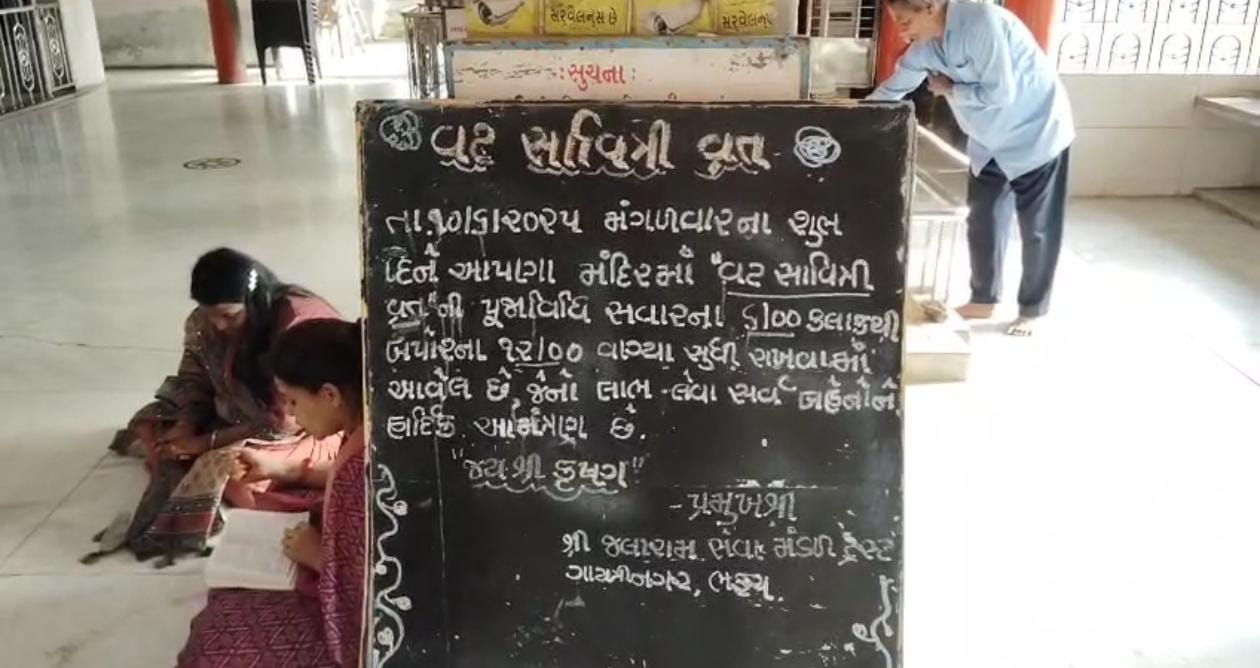 સરવેલન્સ છે
સરવેલન્સ
: સુચના :
વટ સાવિત્રી વ્રત
તા.૧૦/૬/૨૦૨૫ મંગળવારના શુભ
દિને આપણા મંદિરમાં "વટ સાવિત્રી
વ્રત"ની પૂજાવિધિ સવારના ૬/૦૦ કલાકથી
બપોરના ૧૨/૦૦ વાગ્યા સુધી રાખવામાં
આવેલ છે, જેનો લાભ લેવા સર્વે બહેનોને
હાર્દિક આમંત્રણ છે.
"જય શ્રી કૃષ્ણ"
- પ્રમુખશ્રી
શ્રી જલારામ સેવા મંડળ ટ્રસ્ટ
ગાયત્રીનગર, ભરૂચ.